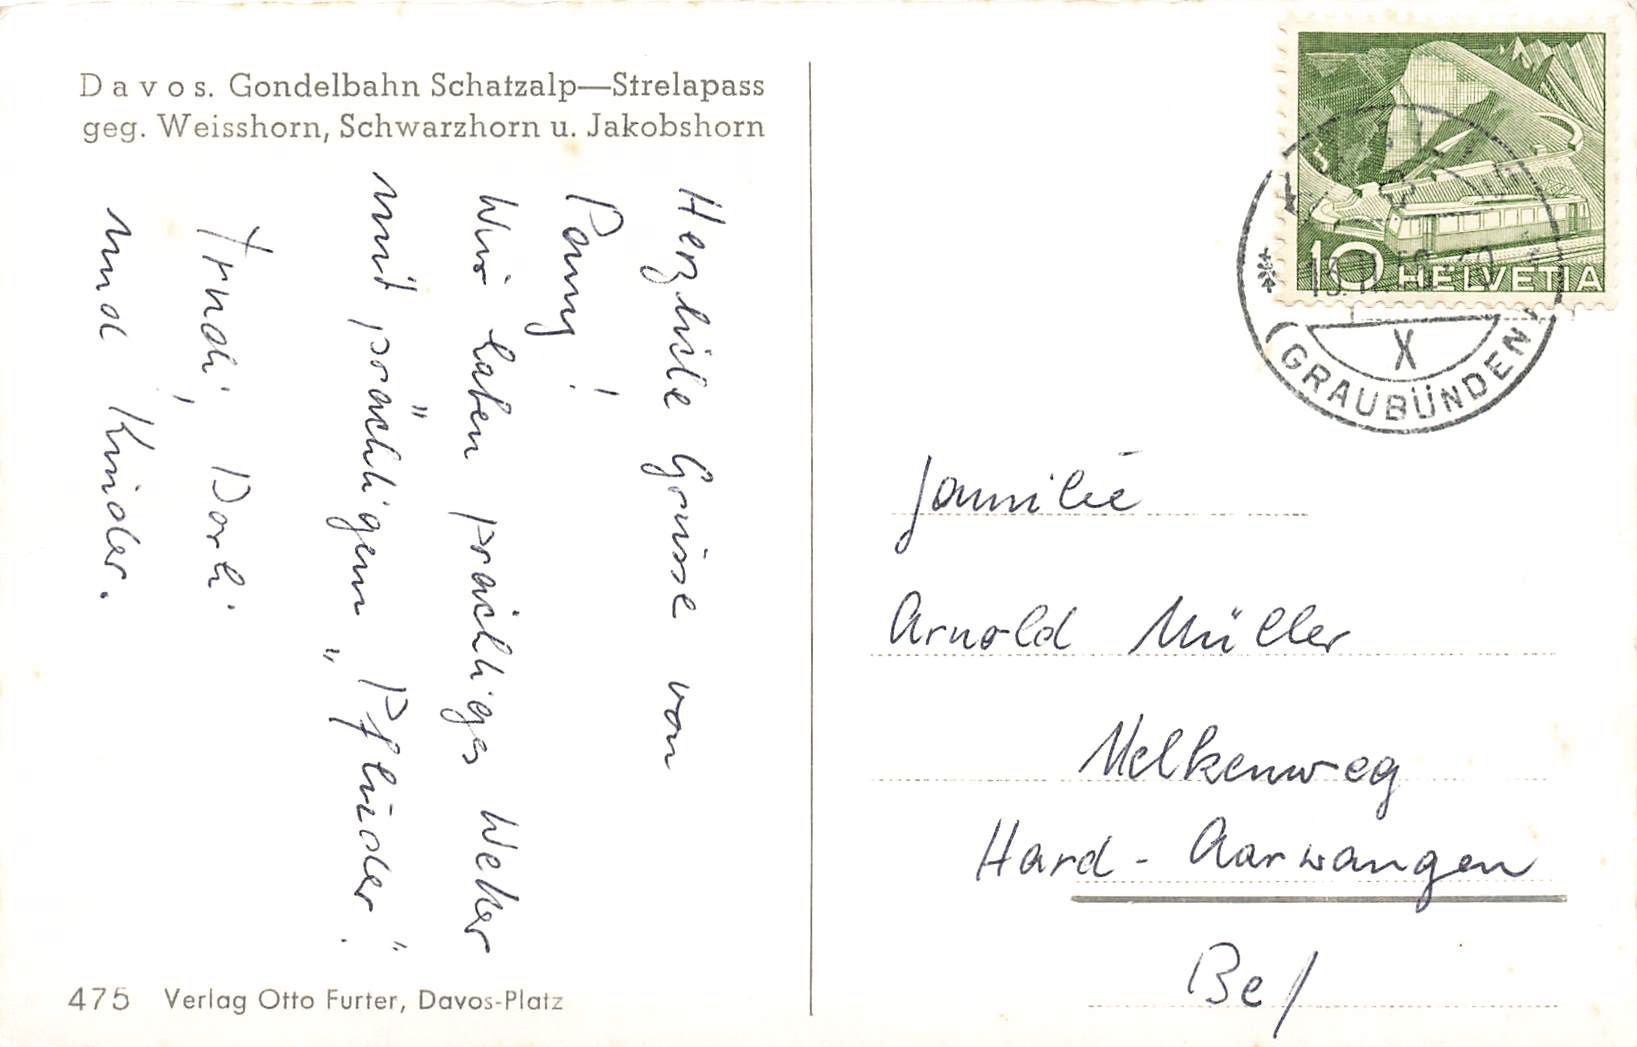 Davos. Gondelbahn Schatzalp—Strelapass
geg. Weisshorn, Schwarzhorn u. Jakobshorn
Herzliche Grüsse von
Pany!
Wir haben prächtiges Wetter
mit prächtigem „Pflüder".
Trudi, Dorli
und Kinder.
475 Verlag Otto Furter, Davos-Platz
10 HELVETIA
(GRAUBÜNDEN)
X
Familie
Arnold Müller
Melkenweg
Hard - Aarwangen
Be/